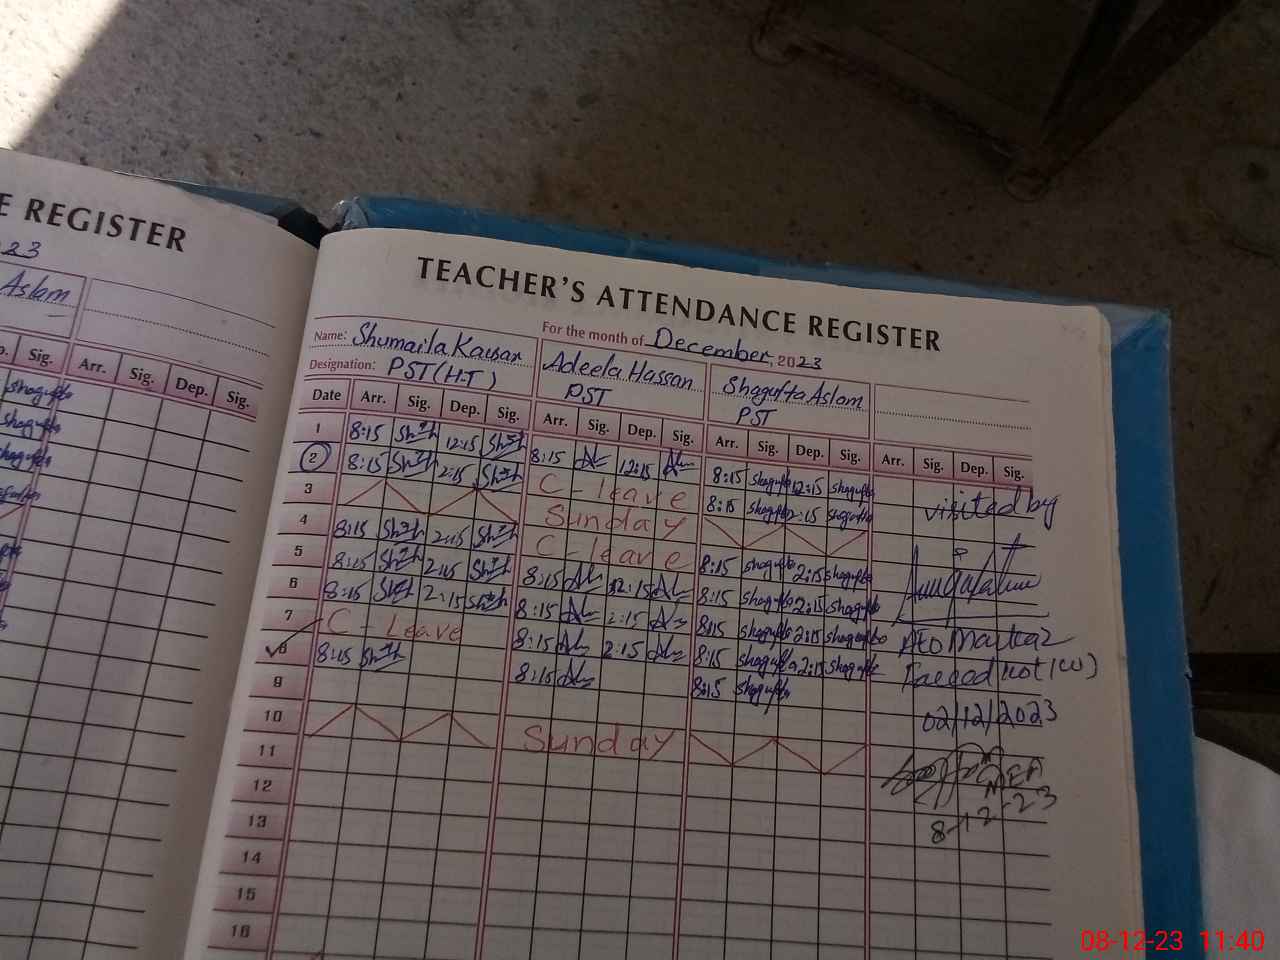 E REGISTER
23
Aslam
Sig. Arr. Sig. Dep. Sig.
TEACHER'S ATTENDANCE REGISTER
For the month of December, 2023
Name: Shumaila Kausar Adeela Hassan Shagufta Aslam
Designation: PST (H.T) PST PST
Date Arr. Sig. Dep. Sig. Arr. Sig. Dep. Sig. Arr. Sig. Dep. Sig. Arr. Sig. Dep. Sig.
1 8:15 12:15 8:15 12:15 8:15 shagufta 12:15 shagufta
2 8:15 2:15 C-leave 8:15 shagufta 2:15 shagufta
3 Sunday
4 8:15 2:15 C-leave 8:15 shagufta 2:15 shagufta
5 8:15 2:15 8:15 12:15 8:15 shagufta 2:15 shagufta
6 8:15 2:15 8:15 2:15 8:15 shagufta 2:15 shagufta
7 C-Leave 8:15 2:15 8:15 shagufta 2:15 shagufta
8 8:15 8:15 8:15 shagufta
9
10 Sunday
11
12
13
14
15
16
visited by
02/12/2023
8-12-23
08-12-23 11:40